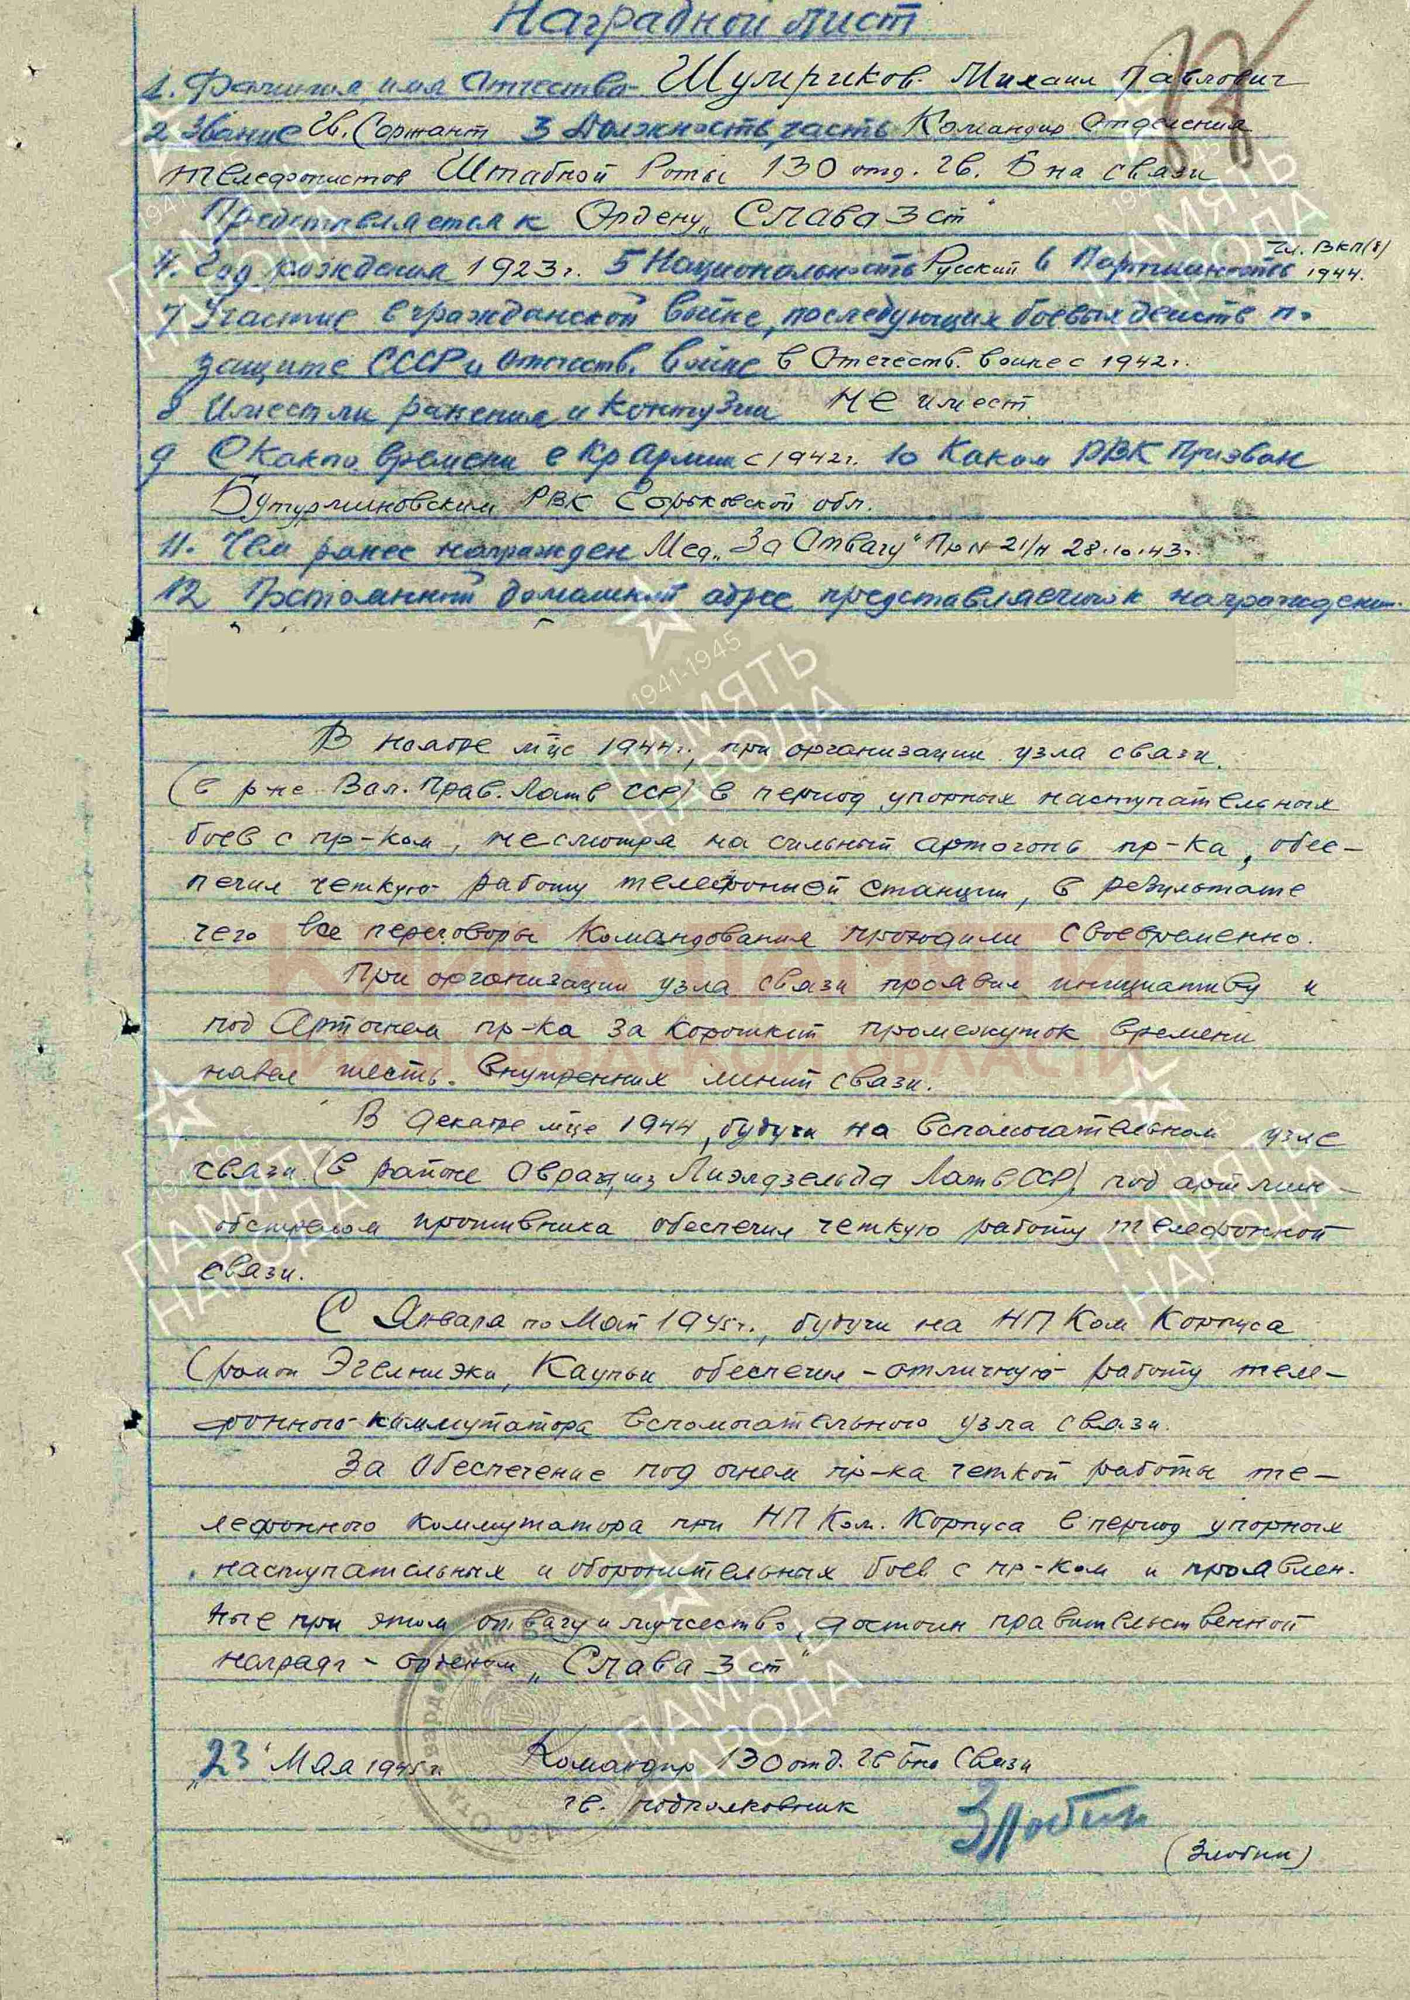 Наградной лист
1. Фамилия, имя Отчество- Шумриков Михаил Павлович
2 Звание Гв. Сержант 3 Должность, часть Командир Отделения
телефонистов Штабной Роты 130 отд. гв. Б на связи
Представляется к Ордену „Слава 3 ст"
чл. ВКП(б)
4. Год рождения 1923 г. 5 Национальность Русский 6 Партийность 1944.
7 Участие в гражданской войне, последующих боевых действ по
защите СССР и отечеств. войне в Отечеств. войне с 1942 г.
8 Имеет ли ранения и контузии не имеет
9 С какого времени в Кр Армии с 1942 г. 10 Каким РВК Призван
Бутурлиновским РВК Горьковской обл.
11. Чем ранее награжден Мед „За Отвагу" Пр N 21/н 28.10.43 г.
12 Постоянный домашний адрес представляемого к награжден.
В ноябре м-це 1944 г., при организации узла связи.
(в р-не Вал. Прав. Латв ССР) в период упорных наступательных
боев с пр-ком, несмотря на сильный артогонь пр-ка, обес-
печил четкую работу телефонной станции, в результате
чего все переговоры Командования проходили своевременно.
При организации узла связи проявил инициативу и
под Артогнем пр-ка за короткий промежуток времени
навел шесть внутренних линий связи.
В декабре м-це 1944, будучи на вспомогательном узле
связи (в районе Лиэлдзельда Латв ССР) под арт мин
обстрелом противника обеспечил четкую работу телефонной
связи.
С Января по Май 1945 г., будучи на НП Ком Корпуса
(район Эгелниэки, Каупьи обеспечил - отличную работу теле-
фонного коммутатора вспомогательного узла связи.
За обеспечение под огнем пр-ка четкой работы те-
лефонного коммутатора при НП Ком. Корпуса в период упорных
наступательных и оборонительных боев с пр-ком и проявлен.
ные при этом отвагу и мужество, достоин правительственной
награды - орденом „Слава 3 ст"
„23" Мая 1945 г. Командир 130 отд. гв бна Связи
гв. подполковник Злобин
(Злобин)
ПАМЯТЬ НАРОДА
1941-1945
КНИГА ПАМЯТИ
НИЖЕГОРОДСКОЙ ОБЛАСТИ